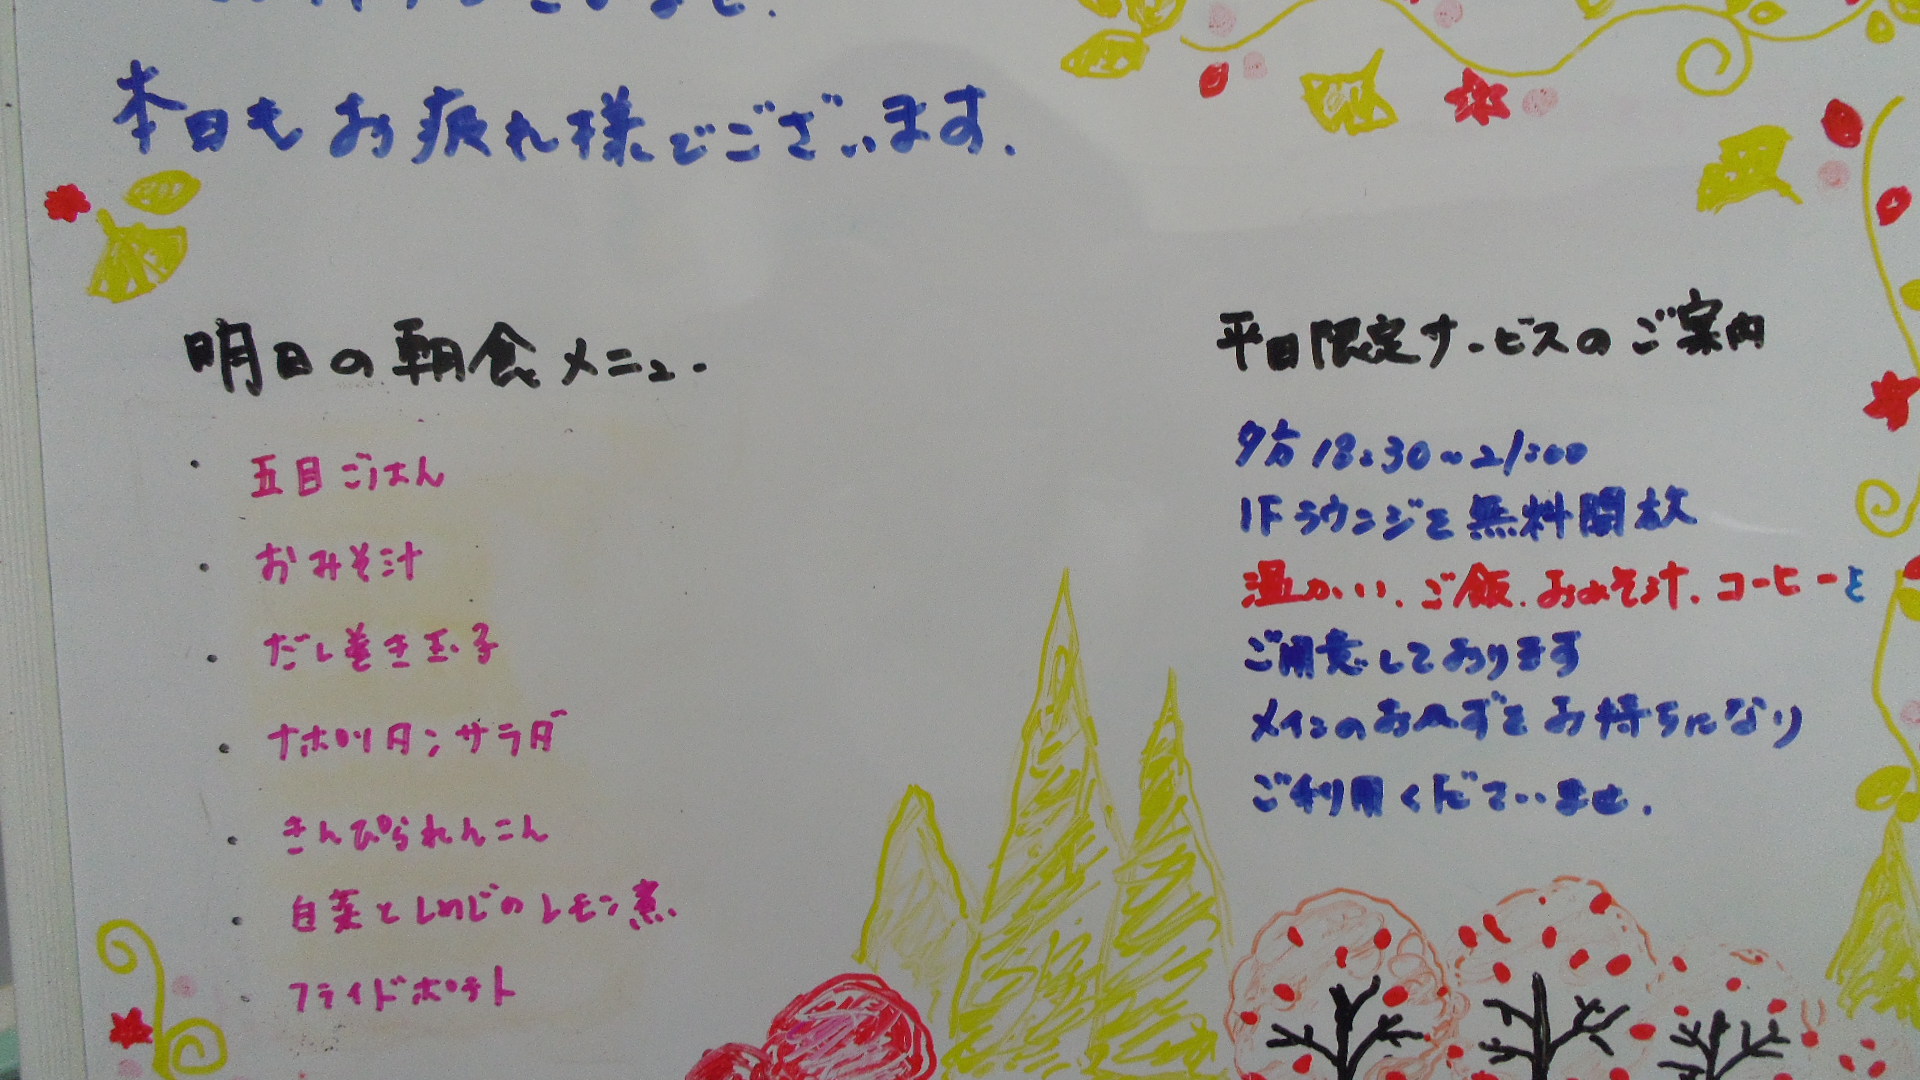 本日もお疲れ様でございます.
明日の朝食メニュー
・五目ごはん
・おみそ汁
・だし巻き玉子
・ナポリタンサラダ
・きんぴられんこん
・白菜としめじのレモン煮
・フライドポテト
平日限定サービスのご案内
夕方18:30~21:00
1Fラウンジを無料開放
温かい、ご飯、おみそ汁、コーヒーを
ご用意しております
メインのおかずをお持ちになり
ご利用くださいませ.